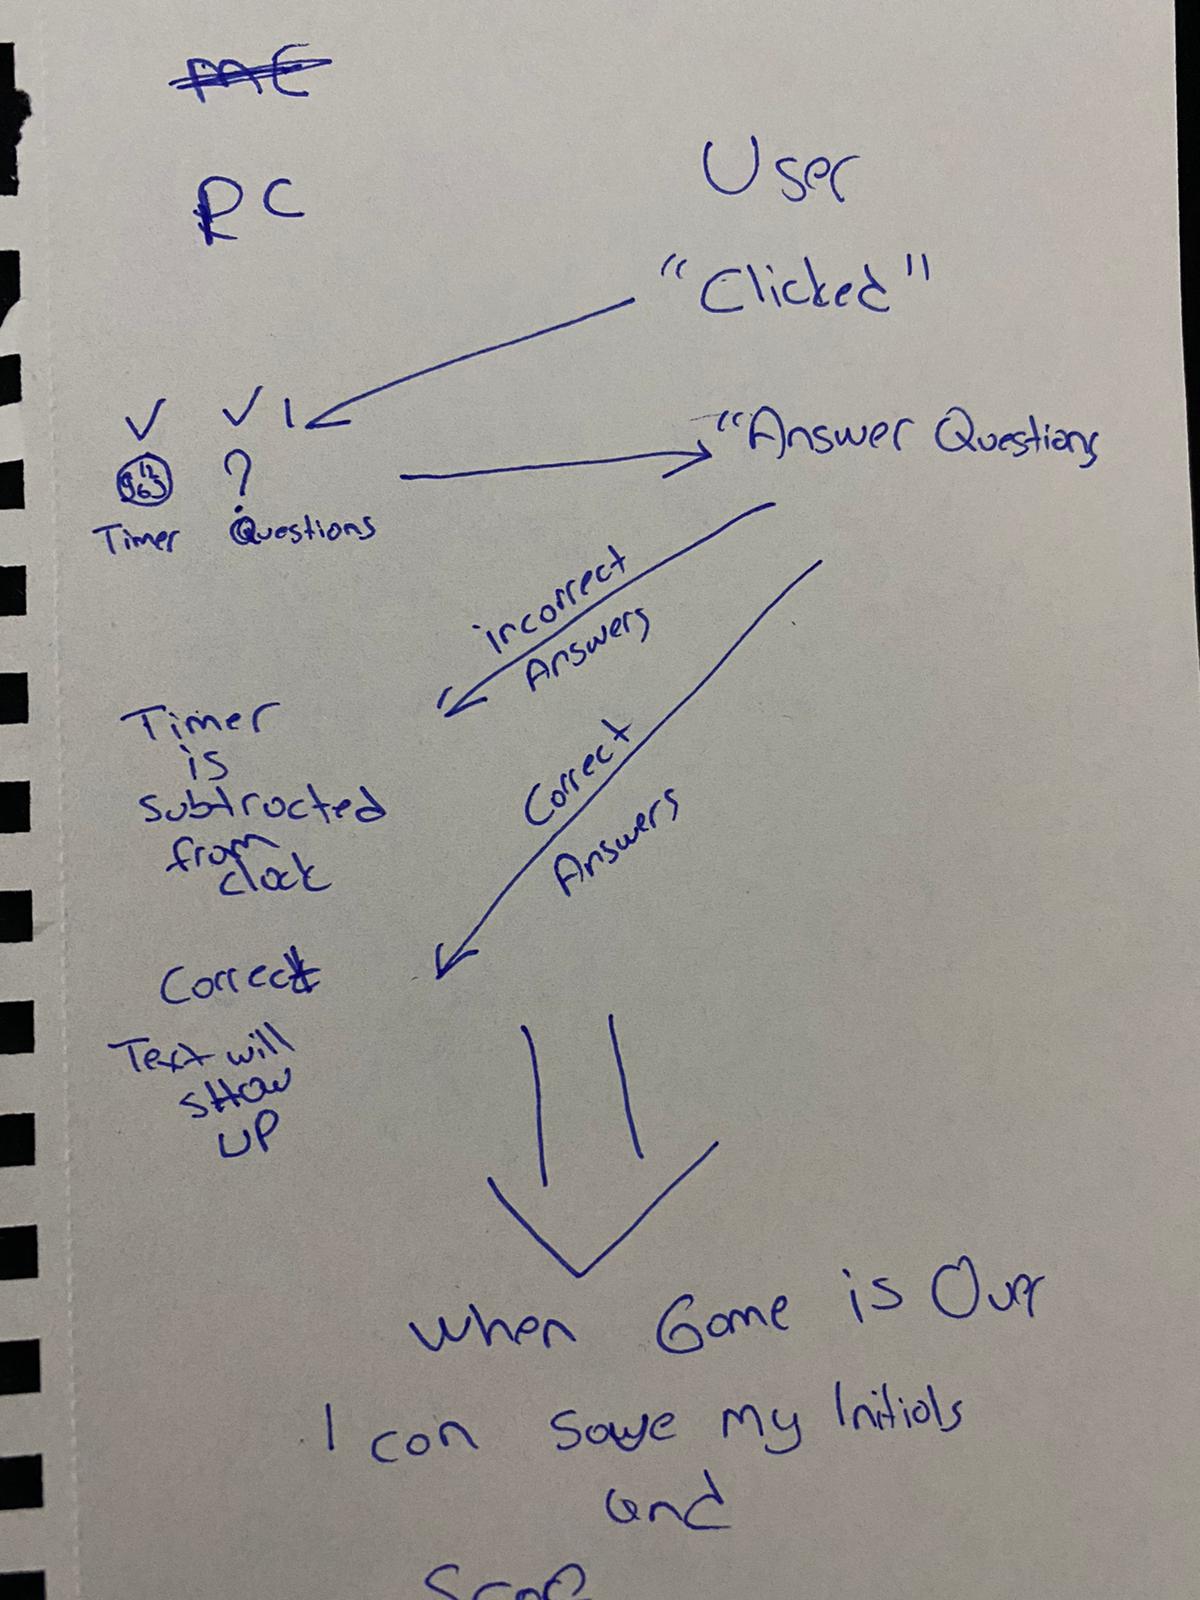 PC
User
"Clicked"
1
"Answer Questions
Timer
Questions
incorrect
Answers
Timer
is
subtracted
from
clock
Correct
Answers
Correct
Text will
SHOW
UP
When Game is Over
I can save my Initials
and